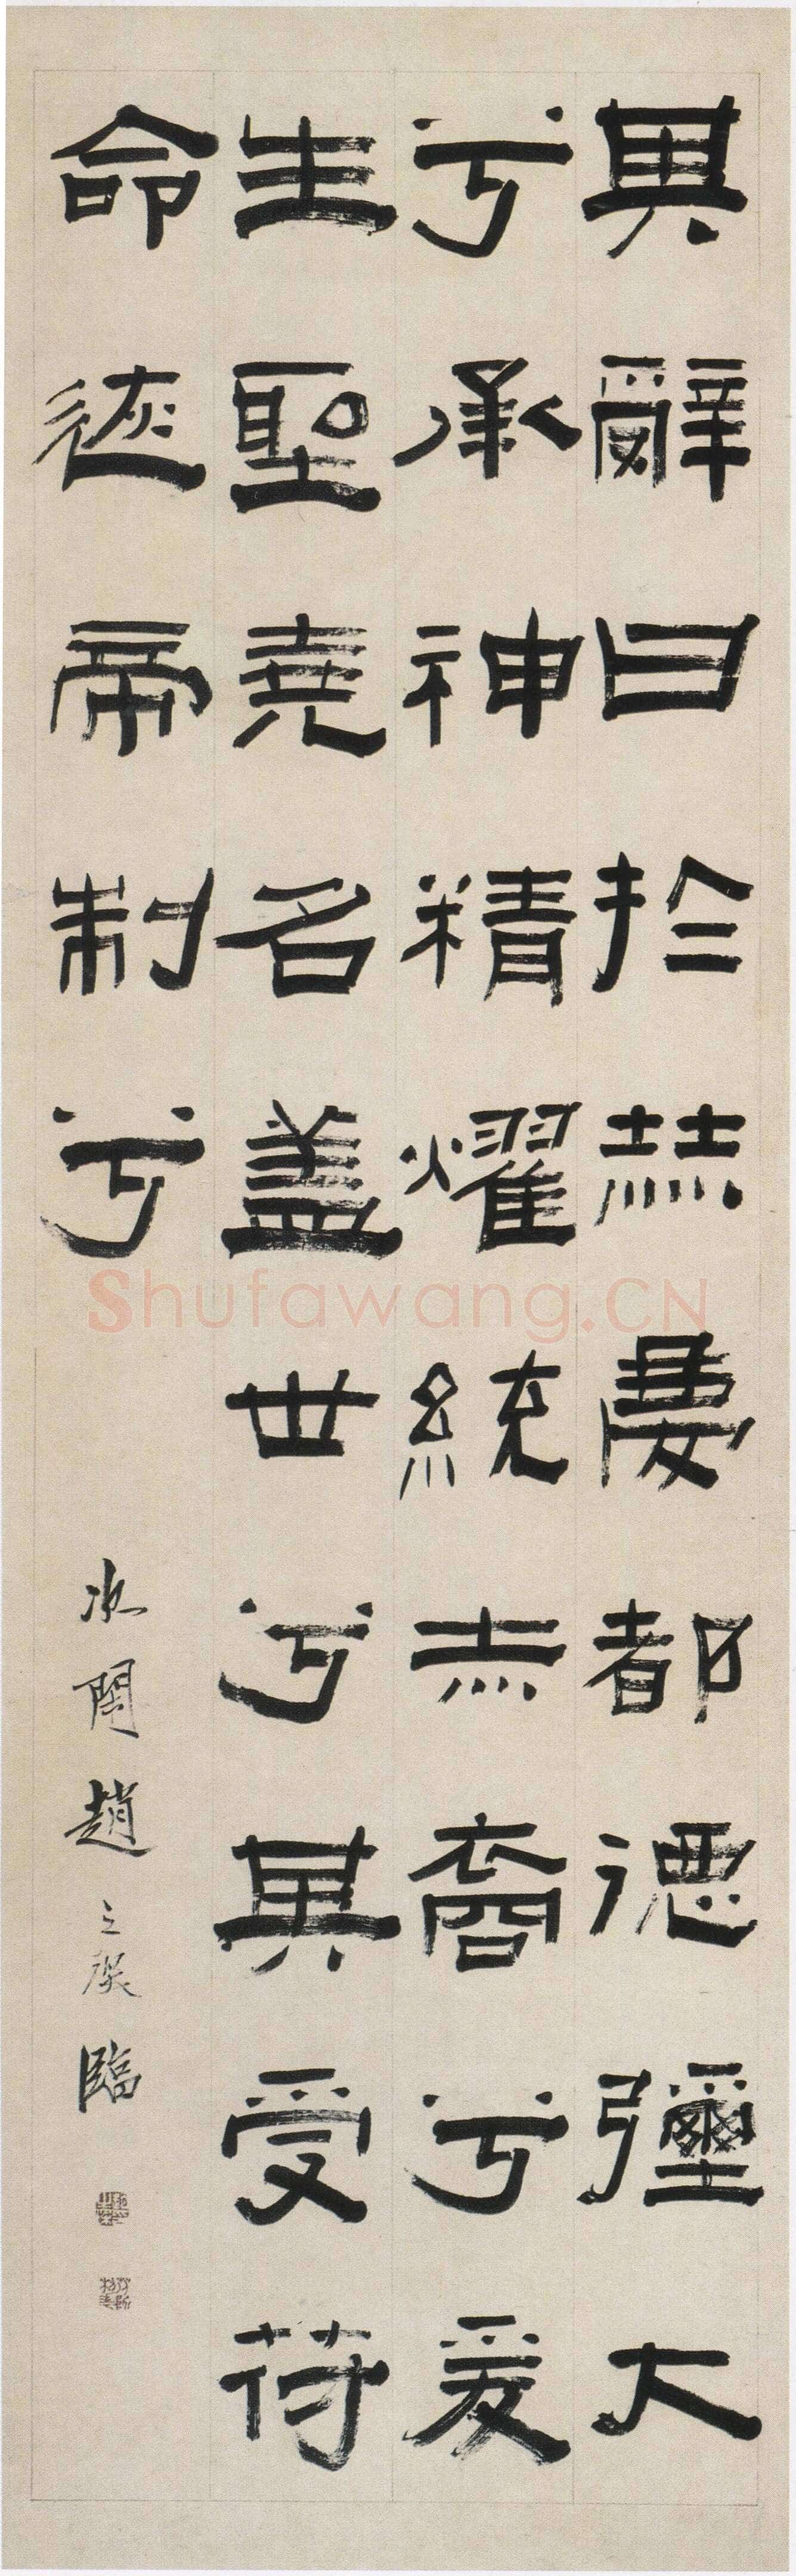 其辭曰於赫慶都德彌大
兮承神精燿統赤裔兮爰
生聖堯名蓋世兮其受符
命遂帝制兮
趙之琛臨
Shufawang.CN